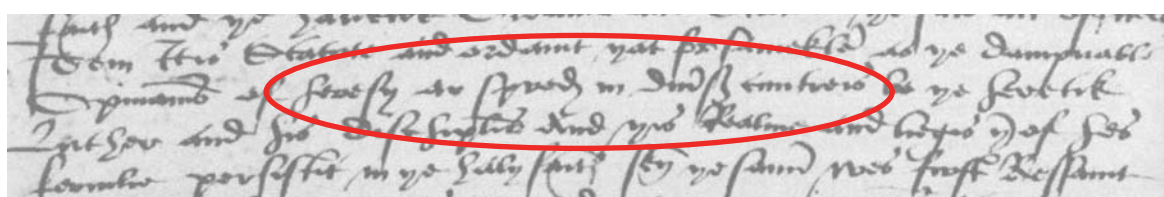 faith and ye
Item It is Statute and ordanit yat forsamekle as ye dampnable
Opinions of heresy ar spred in diuers cuntreis be ye heretik
Luther and his discipillis And yis Realme and liegis yof hes
fermlie persistit in ye haly faith sen ye samin wes first Ressauit